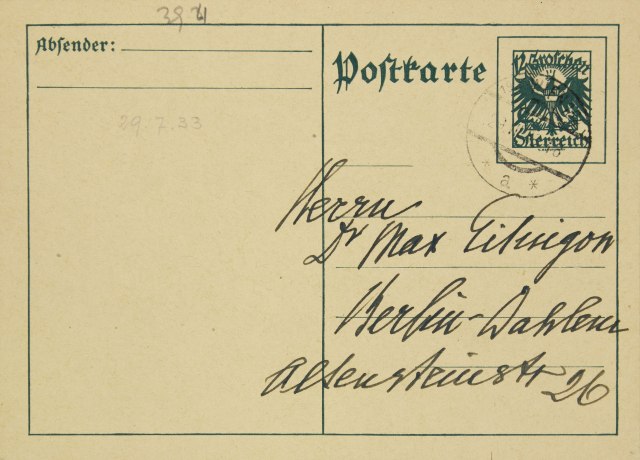 394
Absender:
29.7.33
Postkarte
12 Groschen
Österreich
* a *
Herrn
Dr Max Eitingon
Berlin-Dahlem
Altensteinstr 26